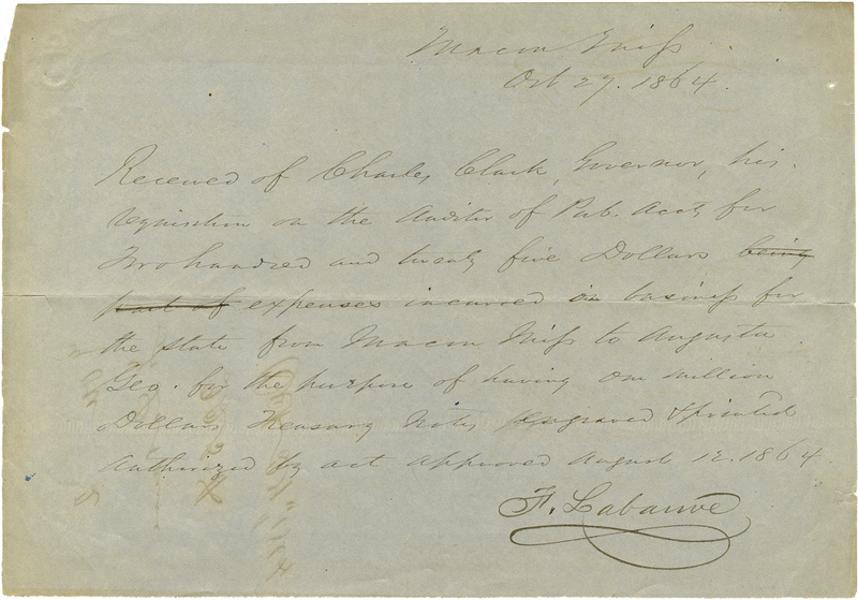 Macon Miss
Oct 27. 1864.
Received of Charles Clark, Governor, his
requisition on the Auditor of Pub. Acots for
Two hundred and twenty five Dollars being
part of expenses incurred in business for
the state from Macon Miss to Augusta
Geo. for the purpose of having one million
Dollars Treasury Notes engraved & printed
Authorized by act approved August 12. 1864
F. Labauve